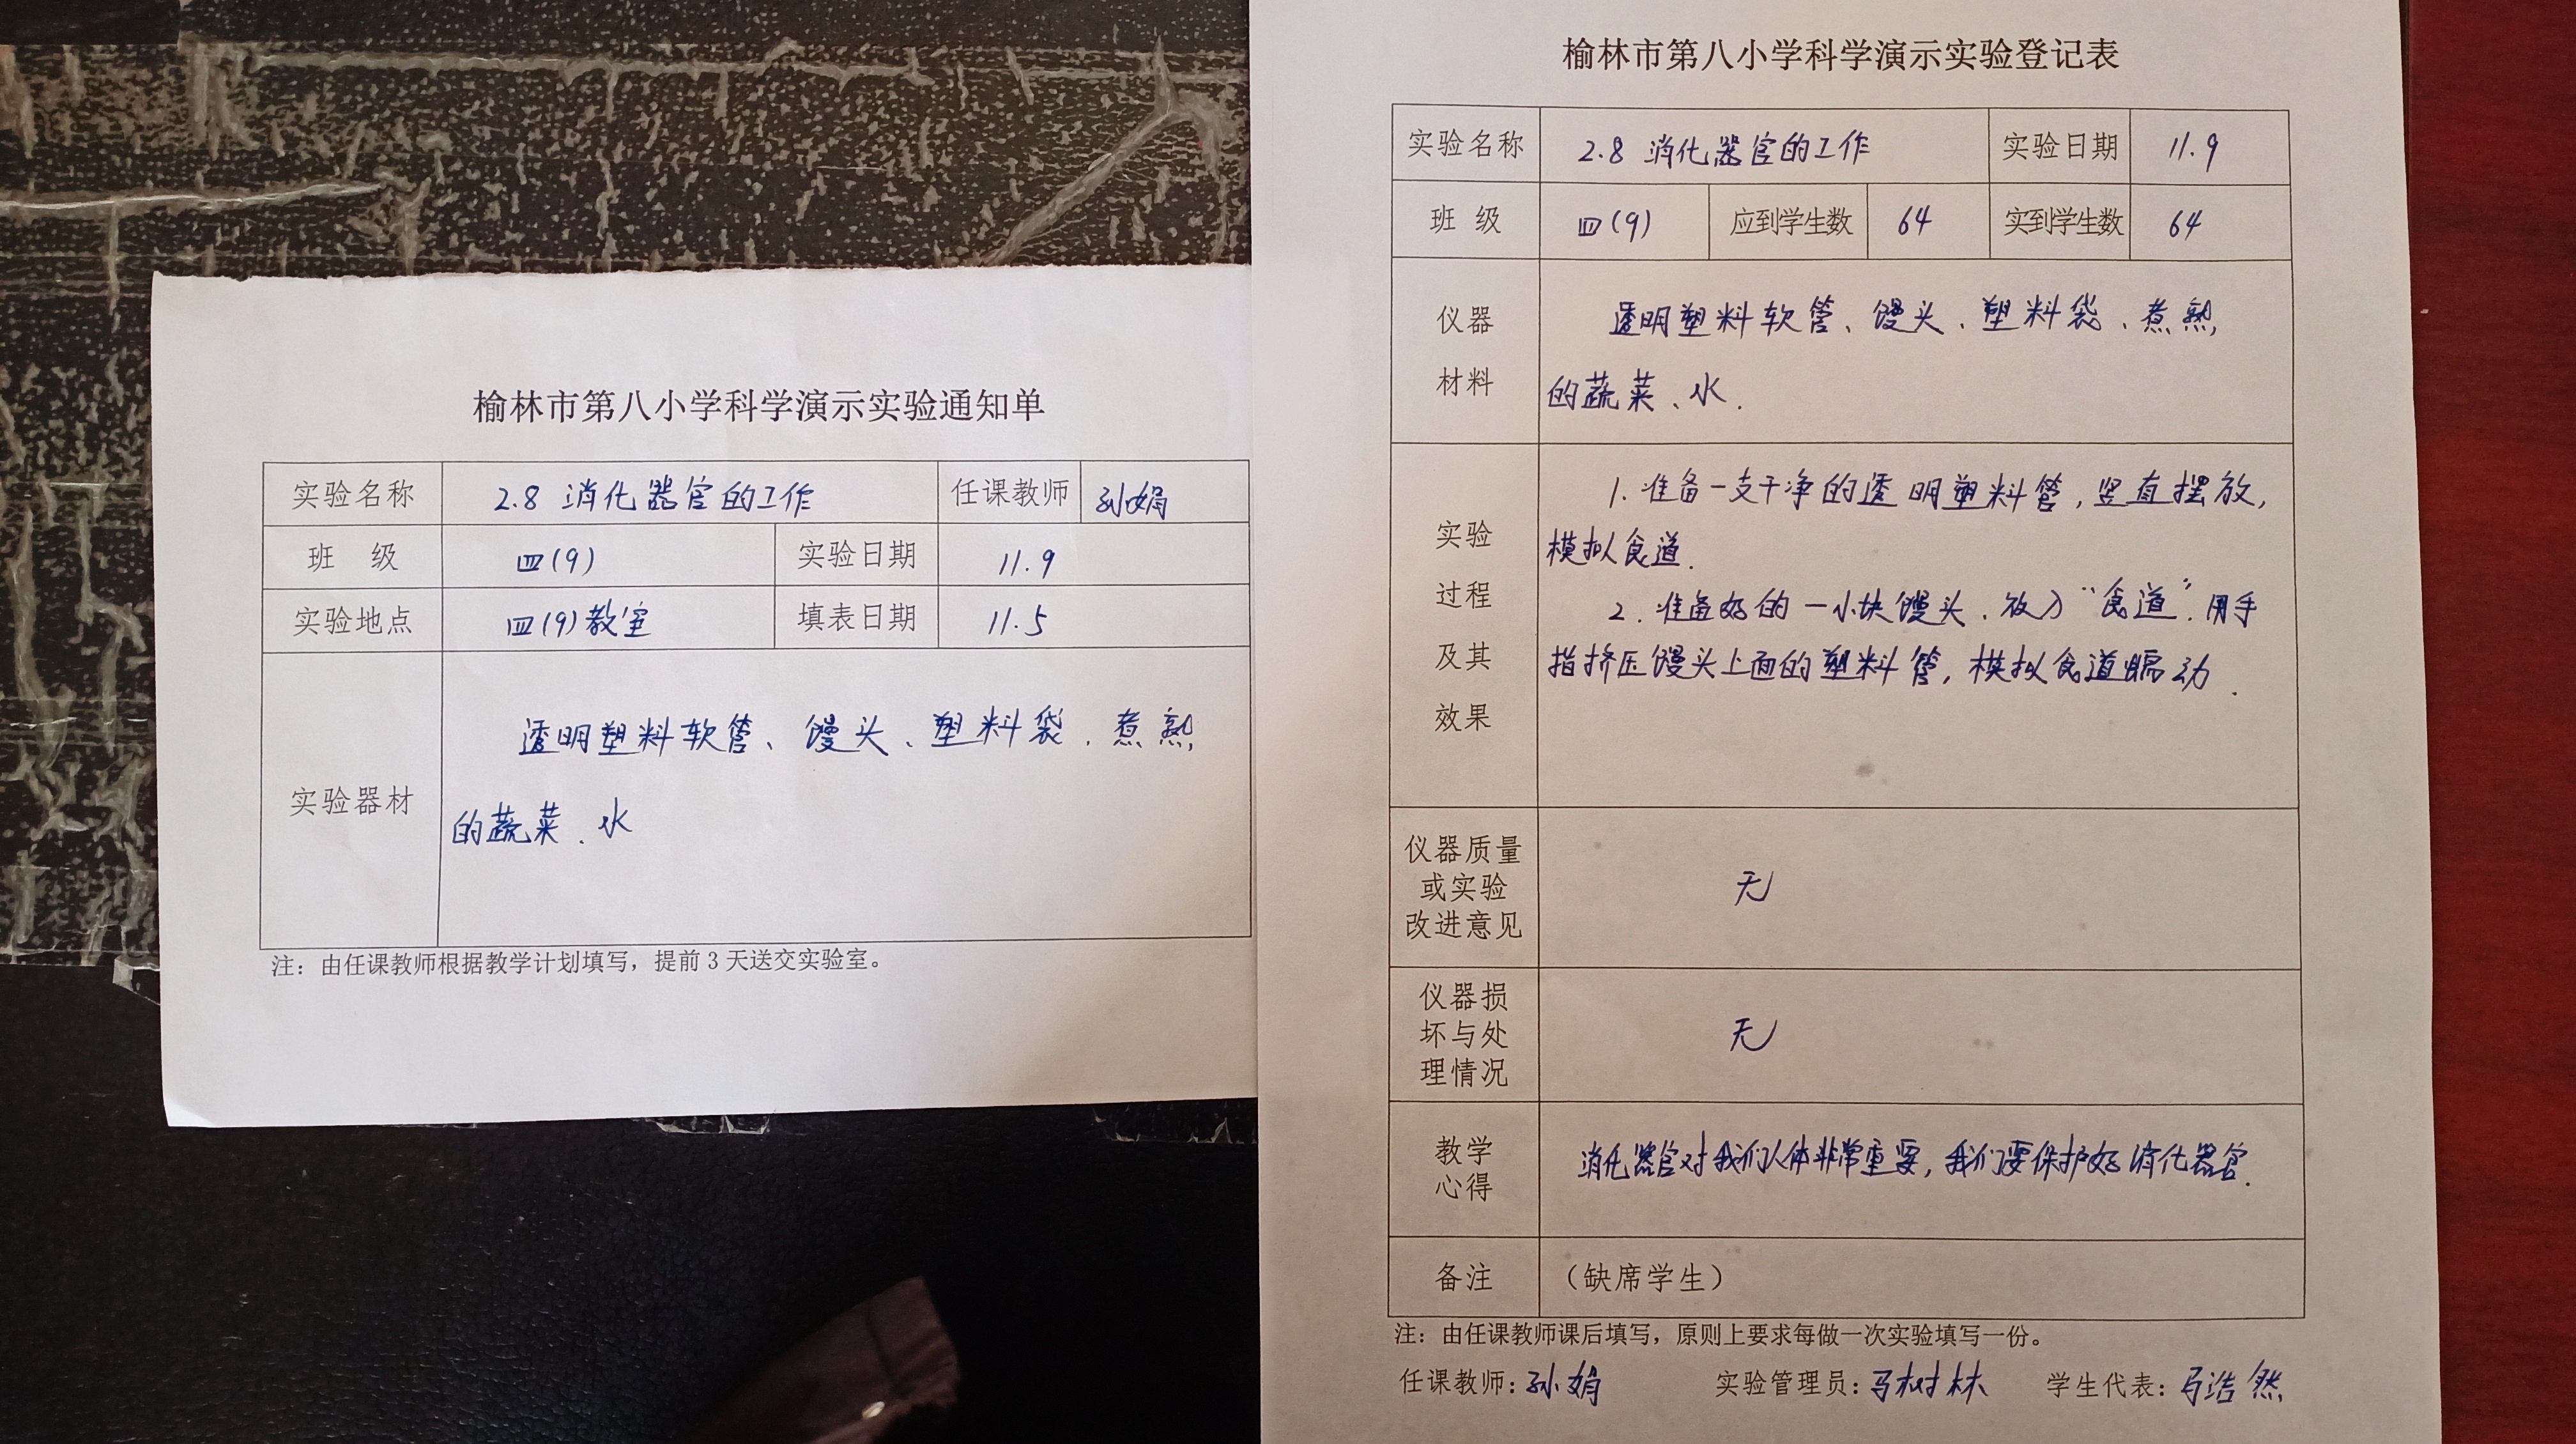 榆林市第八小学科学演示实验通知单
实验名称 2.8 消化器官的工作 任课教师 孙娟
班 级 四(9) 实验日期 11.9
实验地点 四(9)教室 填表日期 11.5
实验器材
透明塑料软管、馒头、塑料袋、煮熟
的蔬菜、水
注：由任课教师根据教学计划填写，提前3天送交实验室。
榆林市第八小学科学演示实验登记表
实验名称 2.8 消化器官的工作 实验日期 11.9
班 级 四(9) 应到学生数 64 实到学生数 64
仪器
材料
透明塑料软管、馒头、塑料袋、煮熟
的蔬菜、水.
实验
过程
及其
效果
1.准备一支干净的透明塑料管，竖直摆放，
模拟食道.
2.准备好的一小块馒头、放入“食道”.用手
指挤压馒头上面的塑料管，模拟食道蠕动.
仪器质量
或实验
改进意见
无
仪器损
坏与处
理情况
无
教学
心得
消化器官对我们人体非常重要，我们要保护好消化器官.
备注 （缺席学生）
注：由任课教师课后填写，原则上要求每做一次实验填写一份。
任课教师：孙娟 实验管理员：马树林 学生代表：马浩然